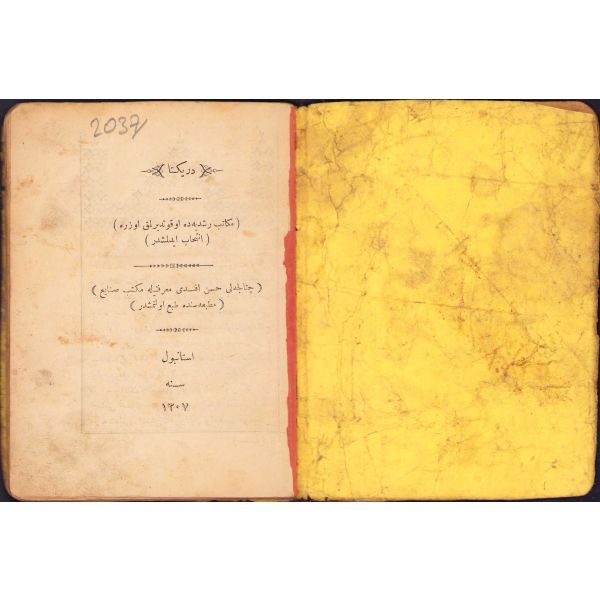 2037
دریكتا
( مكاتب رشدیه‌ده اوقوندیرلمق اوزره )
( انتخاب ایدلمشدر )
( چتالجه‌لی حسن افندی معرفتیله مكتب صنایع )
( مطبعه‌سنده طبع اولنمشدر )
استانبول
سنه
١٣٠٧